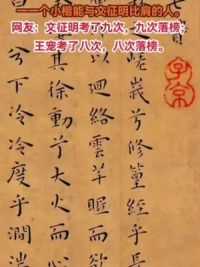 ——一个小楷能与文征明比肩的人。
网友：文征明考了九次，九次落榜；
王宠考了八次，八次落榜。
兮修篁經乎長
以迴絡雲芊眠而
其徐動兮大火而
兮下冷冷度乎澗
子京